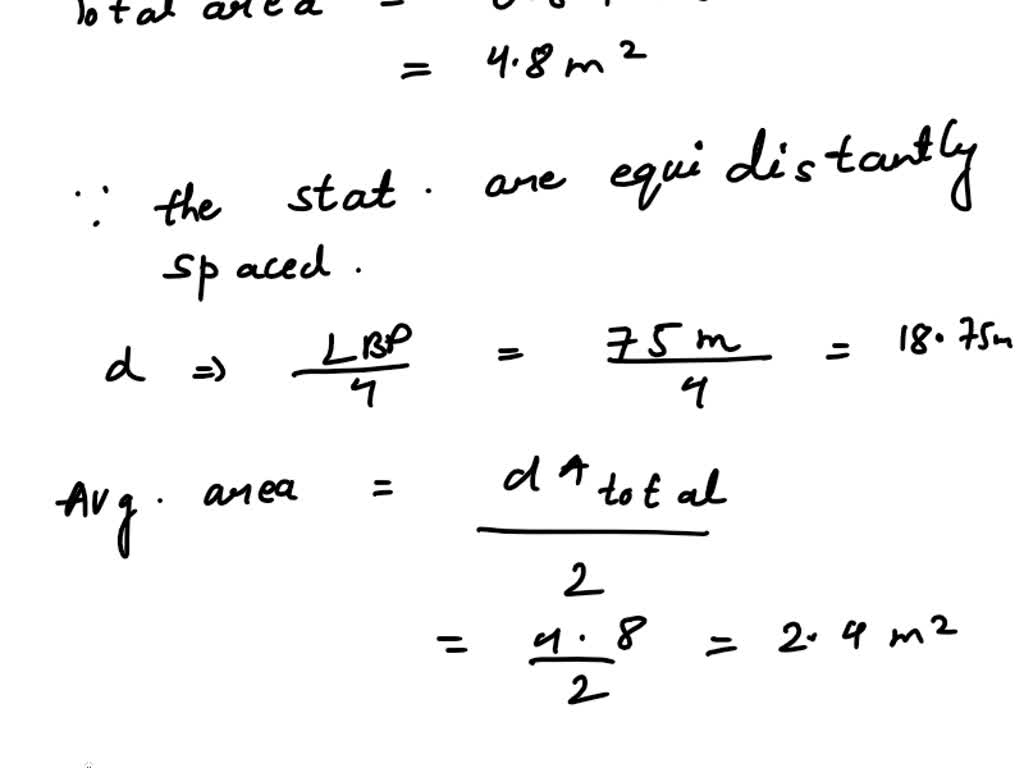 Total area =
= 4.8 m²
∵ the stat. are equidistantly
spaced.
d ⇒ LBP/4 = 75m/4 = 18.75m
Avg. area = dA total / 2
= 4.8/2 = 2.4 m²